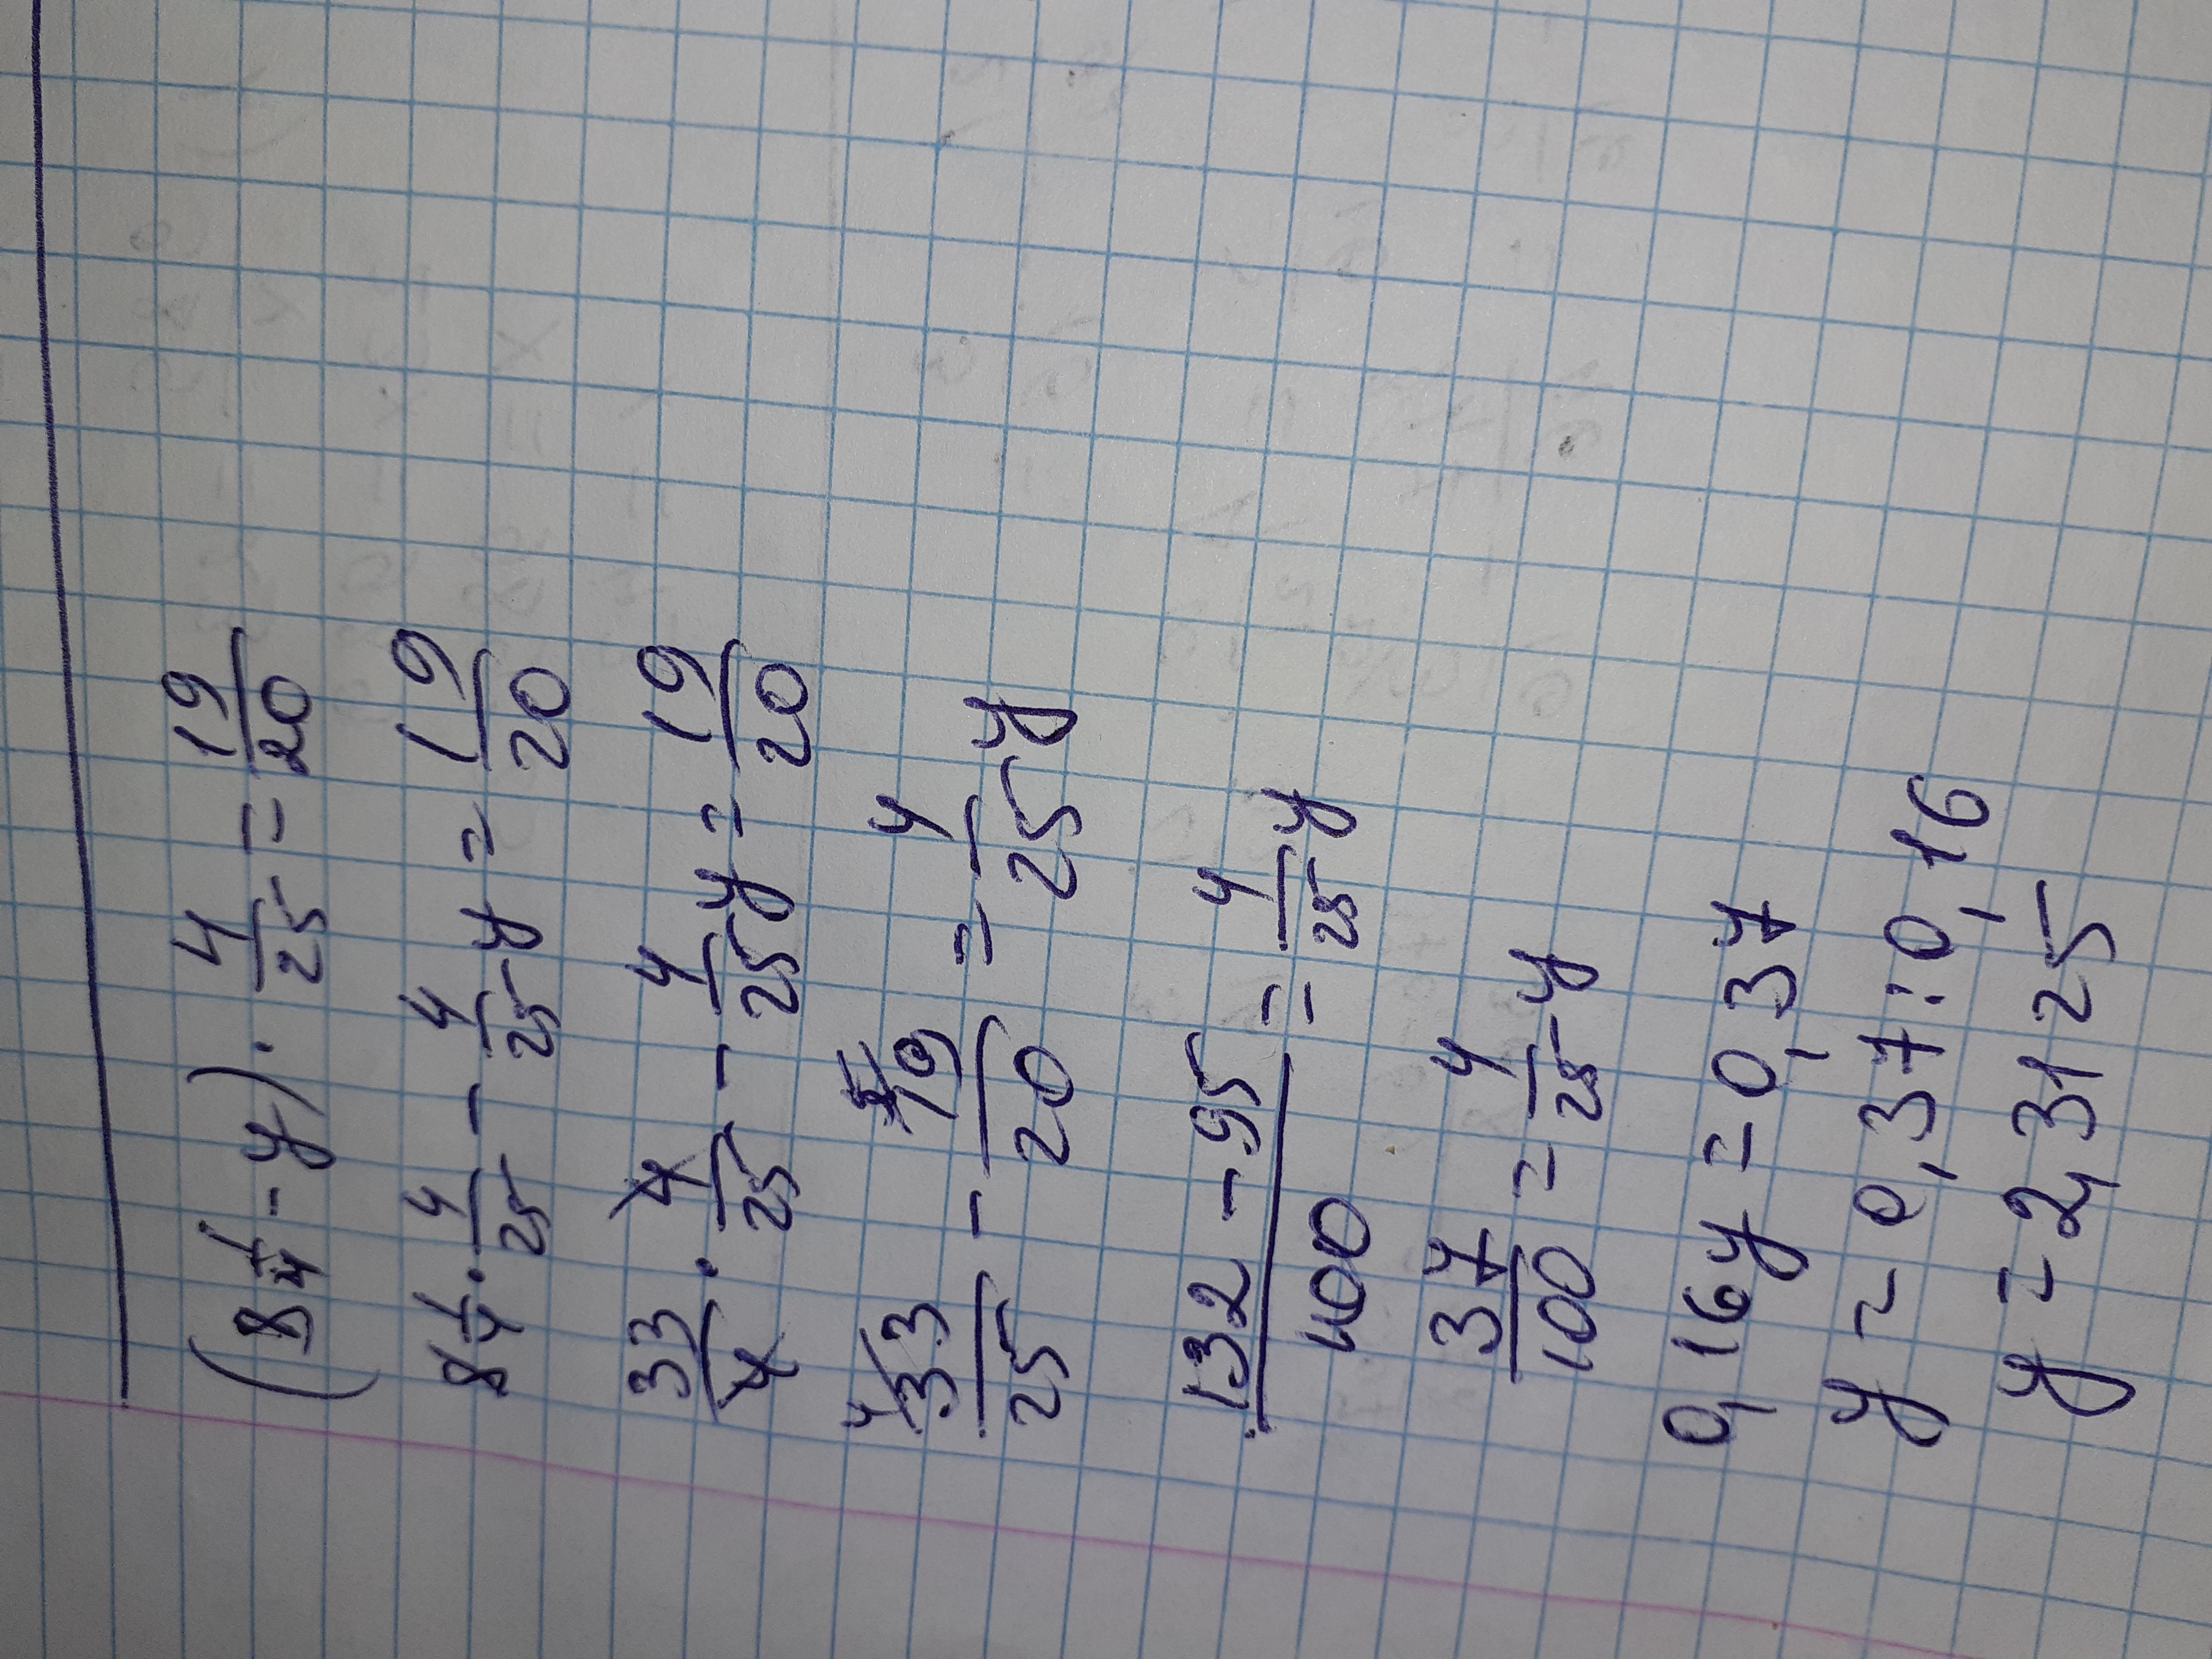 (8 1/4 - y) · 4/25 = 19/20
8 1/4 · 4/25 - 4/25 y = 19/20
33/4 · 4/25 - 4/25 y = 19/20
4/33/25 - 5/19/20 = 4/25 y
132 - 95/100 = 4/25 y
37/100 = 4/25 y
0,16y = 0,37
y = 0,37 : 0,16
y = 2,3125